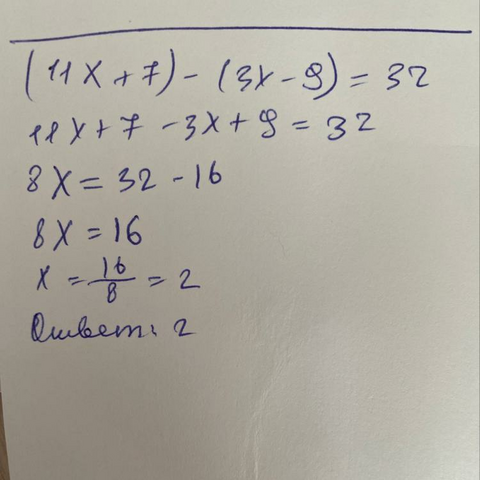 (11x+7)-(3x-9)=32
11x+7-3x+9=32
8x=32-16
8x=16
x=16/8=2
Ответ: 2